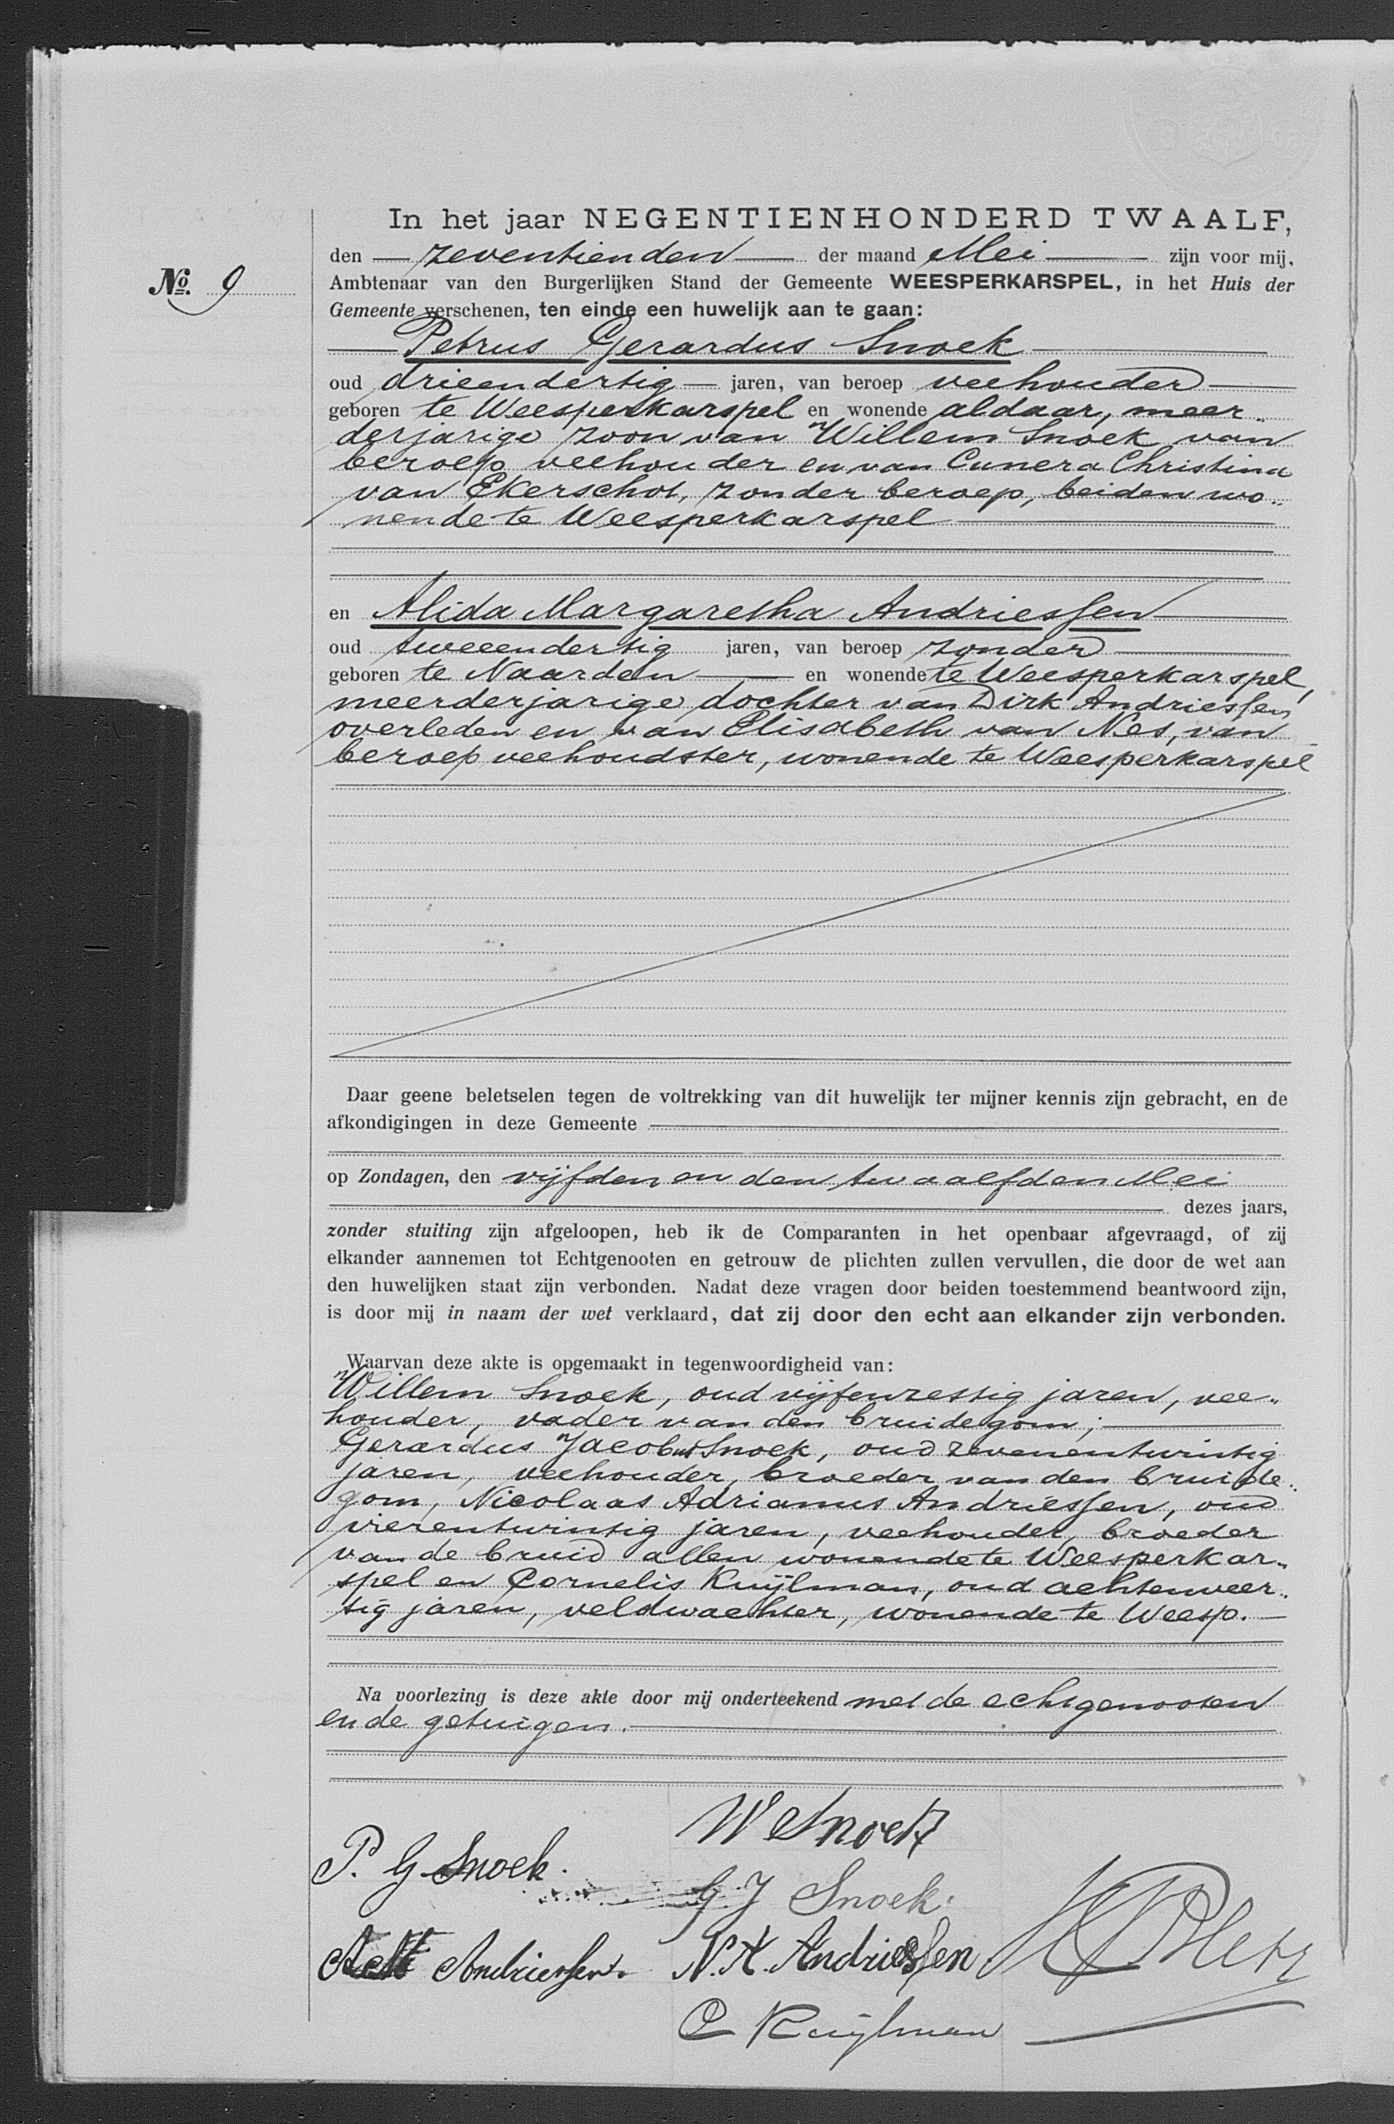 In het jaar NEGENTIENHONDERD TWAALF,
den zeventienden der maand Mei zijn voor mij,
No. 9
Ambtenaar van den Burgerlijken Stand der Gemeente WEESPERKARSPEL, in het Huis der
Gemeente verschenen, ten einde een huwelijk aan te gaan:
Petrus Gerardus Snoek
oud drieendertig jaren, van beroep veehouder
geboren te Weesperkarspel en wonende aldaar, meer„
derjarige zoon van Willem Snoek van
beroep veehouder en van Cunera Christina
van Ekerschot, zonder beroep, beiden wo„
nende te Weesperkarspel
en Alida Margaretha Andriessen
oud tweeendertig jaren, van beroep zonder
geboren te Naarden en wonende te Weesperkarspel,
meerderjarige dochter van Dirk Andriessen
overleden en van Elisabeth van Nes, van
beroep veehoudster, wonende te Weesperkarspel
Daar geene beletselen tegen de voltrekking van dit huwelijk ter mijner kennis zijn gebracht, en de
afkondigingen in deze Gemeente
op Zondagen, den vijfden en den twaalfden Mei
dezes jaars,
zonder stuiting zijn afgeloopen, heb ik de Comparanten in het openbaar afgevraagd, of zij
elkander aannemen tot Echtgenooten en getrouw de plichten zullen vervullen, die door de wet aan
den huwelijken staat zijn verbonden. Nadat deze vragen door beiden toestemmend beantwoord zijn,
is door mij in naam der wet verklaard, dat zij door den echt aan elkander zijn verbonden.
Waarvan deze akte is opgemaakt in tegenwoordigheid van:
Willem Snoek, oud vijfenzestig jaren, vee„
houder, vader van den bruidegom;
Gerardus Jacobus Snoek, oud zevenentwintig
jaren, veehouder, broeder van den bruide„
gom, Nicolaas Adrianus Andriessen, oud
vierentwintig jaren, veehouder, broeder
van de bruid allen wonende te Weesperkar„
spel en Cornelis Kuijlman, oud achtenveer„
tig jaren, veldwachter, wonende te Weesp.
Na voorlezing is deze akte door mij onderteekend met de echtgenooten
en de getuigen.
W Snoek
P. G Snoek.
G J Snoek.
Andriessen.
N. A. Andriessen
C Kuijlman